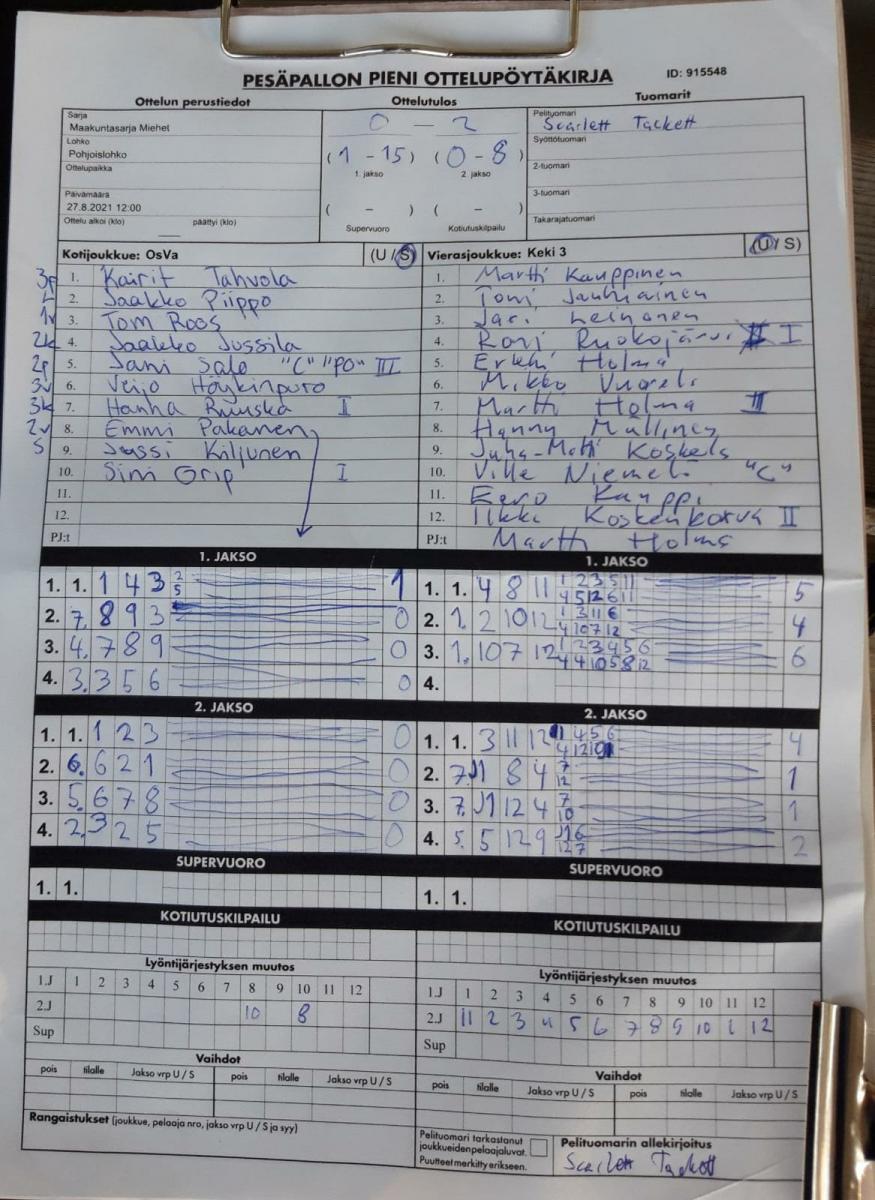 PESÄPALLON PIENI OTTELUPÖYTÄKIRJA
ID: 915548
Ottelun perustiedot
Sarja
Maakuntasarja Miehet
Lohko
Pohjoislohko
Ottelupaikka
Päivämäärä
27.8.2021 12:00
Ottelu alkoi (klo) päättyi (klo)
Ottelutulos
0 — 2
(1 - 15) (0 - 8)
1. jakso 2. jakso
( - ) ( - )
Supervuoro Kotiutuskilpailu
Tuomarit
Pelituomari
Scarlett Tackett
Syöttötuomari
2-tuomari
3-tuomari
Takarajatuomari
Kotijoukkue: OsVa (U / S)
1. Kairit Tahvola
2. Jaakko Piippo
1v 3. Tom Roos
2k 4. Jaakko Jussila
2p 5. Jani Salo "C" "PO" III
3v 6. Veijo
3k 7. Hanna I
2v 8. Emmi Pakanen
S 9. Jussi Kiljunen
10. Sini Grip I
11.
12.
PJ:t
Vierasjoukkue: Keki 3 (U / S)
1. Martti Kauppinen
2. Toni Jauhiainen
3. Jari Leinonen
4. Ruokojärvi I
5. Erkki Holma
6. Mikko
7. Martti Holma II
8. Hannu
9. Juha-Matti Koskela
10. Ville Niemelä "C"
11. Eero Kauppi
12. Ilkki Koskenkorva II
PJ:t Martti Holma
1. JAKSO
1. 1. 1 4 3 2 5 1
2. 7. 8 9 3 0
3. 4. 7 8 9 0
4. 3. 3 5 6 0
1. JAKSO
1. 1. 4 8 11 1 2 3 5 11 5
4 5 12 6 11
2. 1. 2 10 12 1 3 11 6 4
4 10 7 12
3. 1. 10 7 12 1 2 3 4 5 6 6
4 4 10 5 8 12
4.
2. JAKSO
1. 1. 1 2 3 0
2. 6. 6 2 1 0
3. 5. 6 7 8 0
4. 2. 3 2 5 0
2. JAKSO
1. 1. 3 11 12 4 5 6 4
4 12 10
2. 7. 11 8 4 7 12 1
3. 7. 11 12 4 7 10 1
4. 5. 5 12 9 6 2
12 7
SUPERVUORO
1. 1.
SUPERVUORO
1. 1.
KOTIUTUSKILPAILU
KOTIUTUSKILPAILU
Lyöntijärjestyksen muutos
1.J 1 2 3 4 5 6 7 8 9 10 11 12
2.J 10 8
Sup
Lyöntijärjestyksen muutos
1.J 1 2 3 4 5 6 7 8 9 10 11 12
2.J 11 2 3 4 5 6 7 8 9 10 1 12
Sup
Vaihdot
pois tilalle Jakso vrp U / S pois tilalle Jakso vrp U / S
Vaihdot
pois tilalle Jakso vrp U / S pois tilalle Jakso vrp U / S
Rangaistukset (joukkue, pelaaja nro, jakso vrp U / S ja syy)
Pelituomari tarkastanut
joukkueidenpelaajaluvat.
Puutteet merkitty erikseen.
Pelituomarin allekirjoitus
Scarlett Tackett